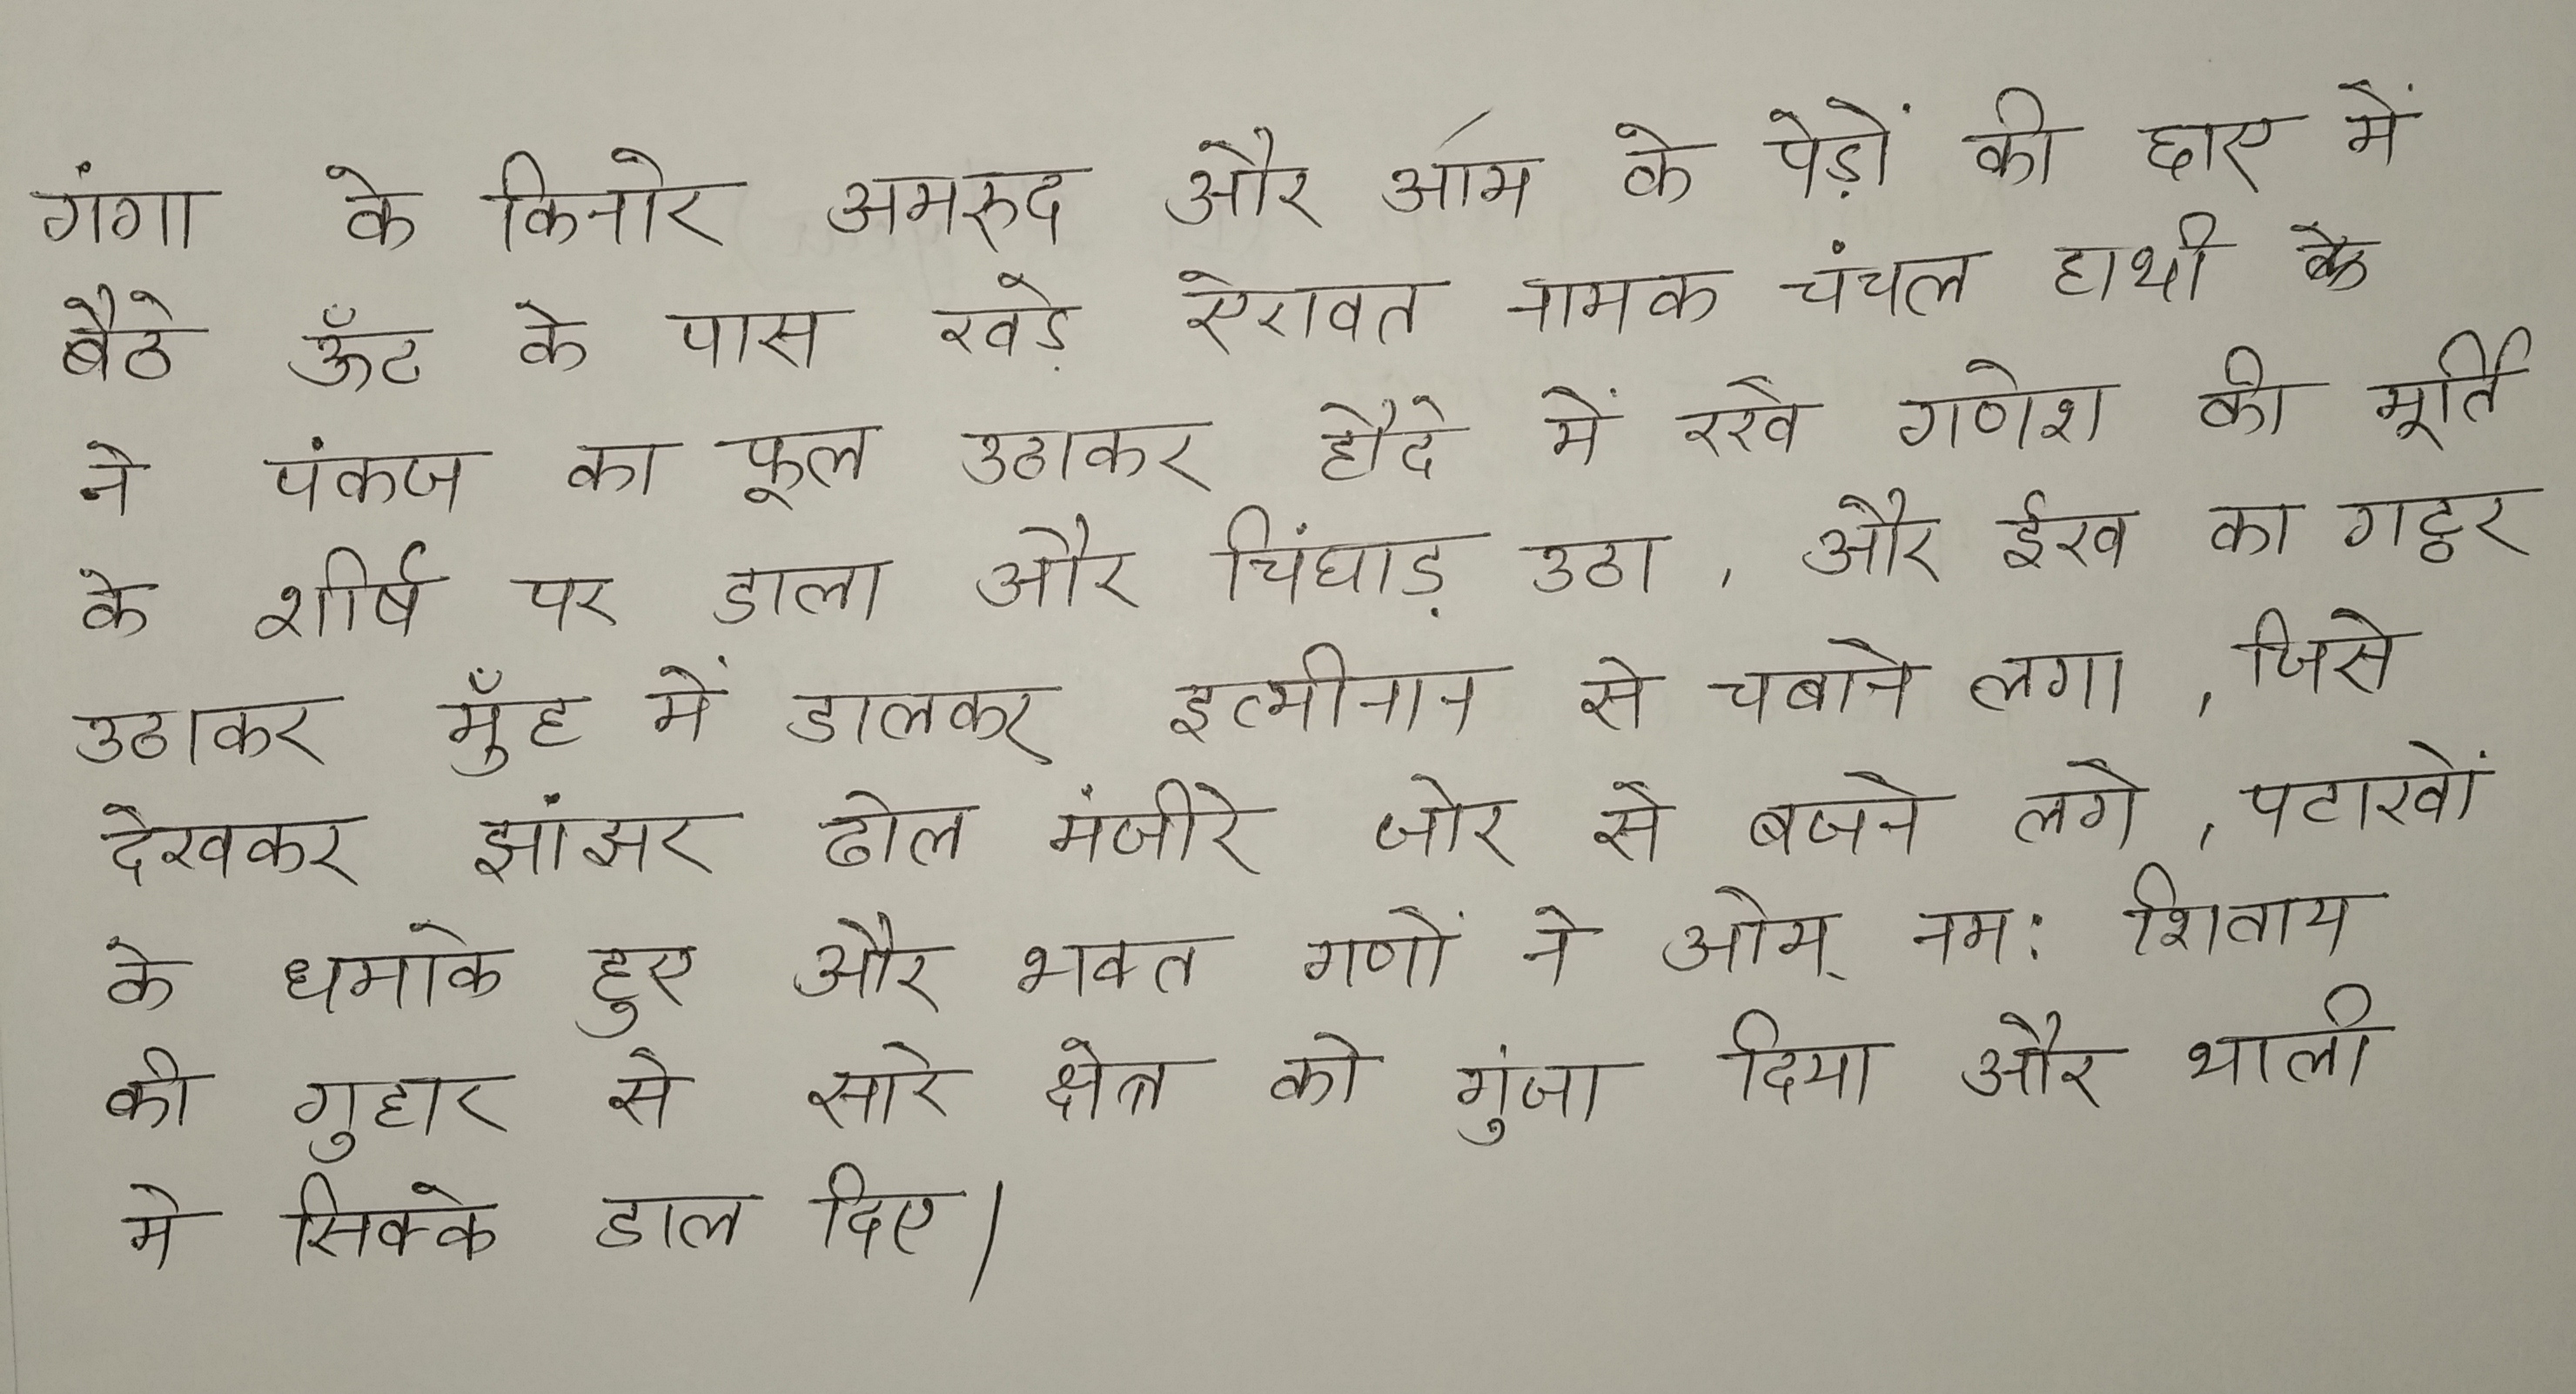 गंगा के किनारे अमरुद और आम के पेड़ों की छाए में
बैठे ऊँट के पास खड़े ऐरावत नामक चंचल हाथी के
ने पंकज का फूल उठाकर हौदे में रखे गणेश की मूर्ति
के शीर्ष पर डाला और चिंघाड़ उठा, और ईख का गट्ठर
उठाकर मुँह में डालकर इत्मीनान से चबाने लगा, जिसे
देखकर झांझर ढोल मंजीरे जोर से बजने लगे, पटाखों
के धमाके हुए और भक्त गणों ने ओम् नम: शिवाय
की गुहार से सारे क्षेत्र को गुंजा दिया और थाली
मे सिक्के डाल दिए।